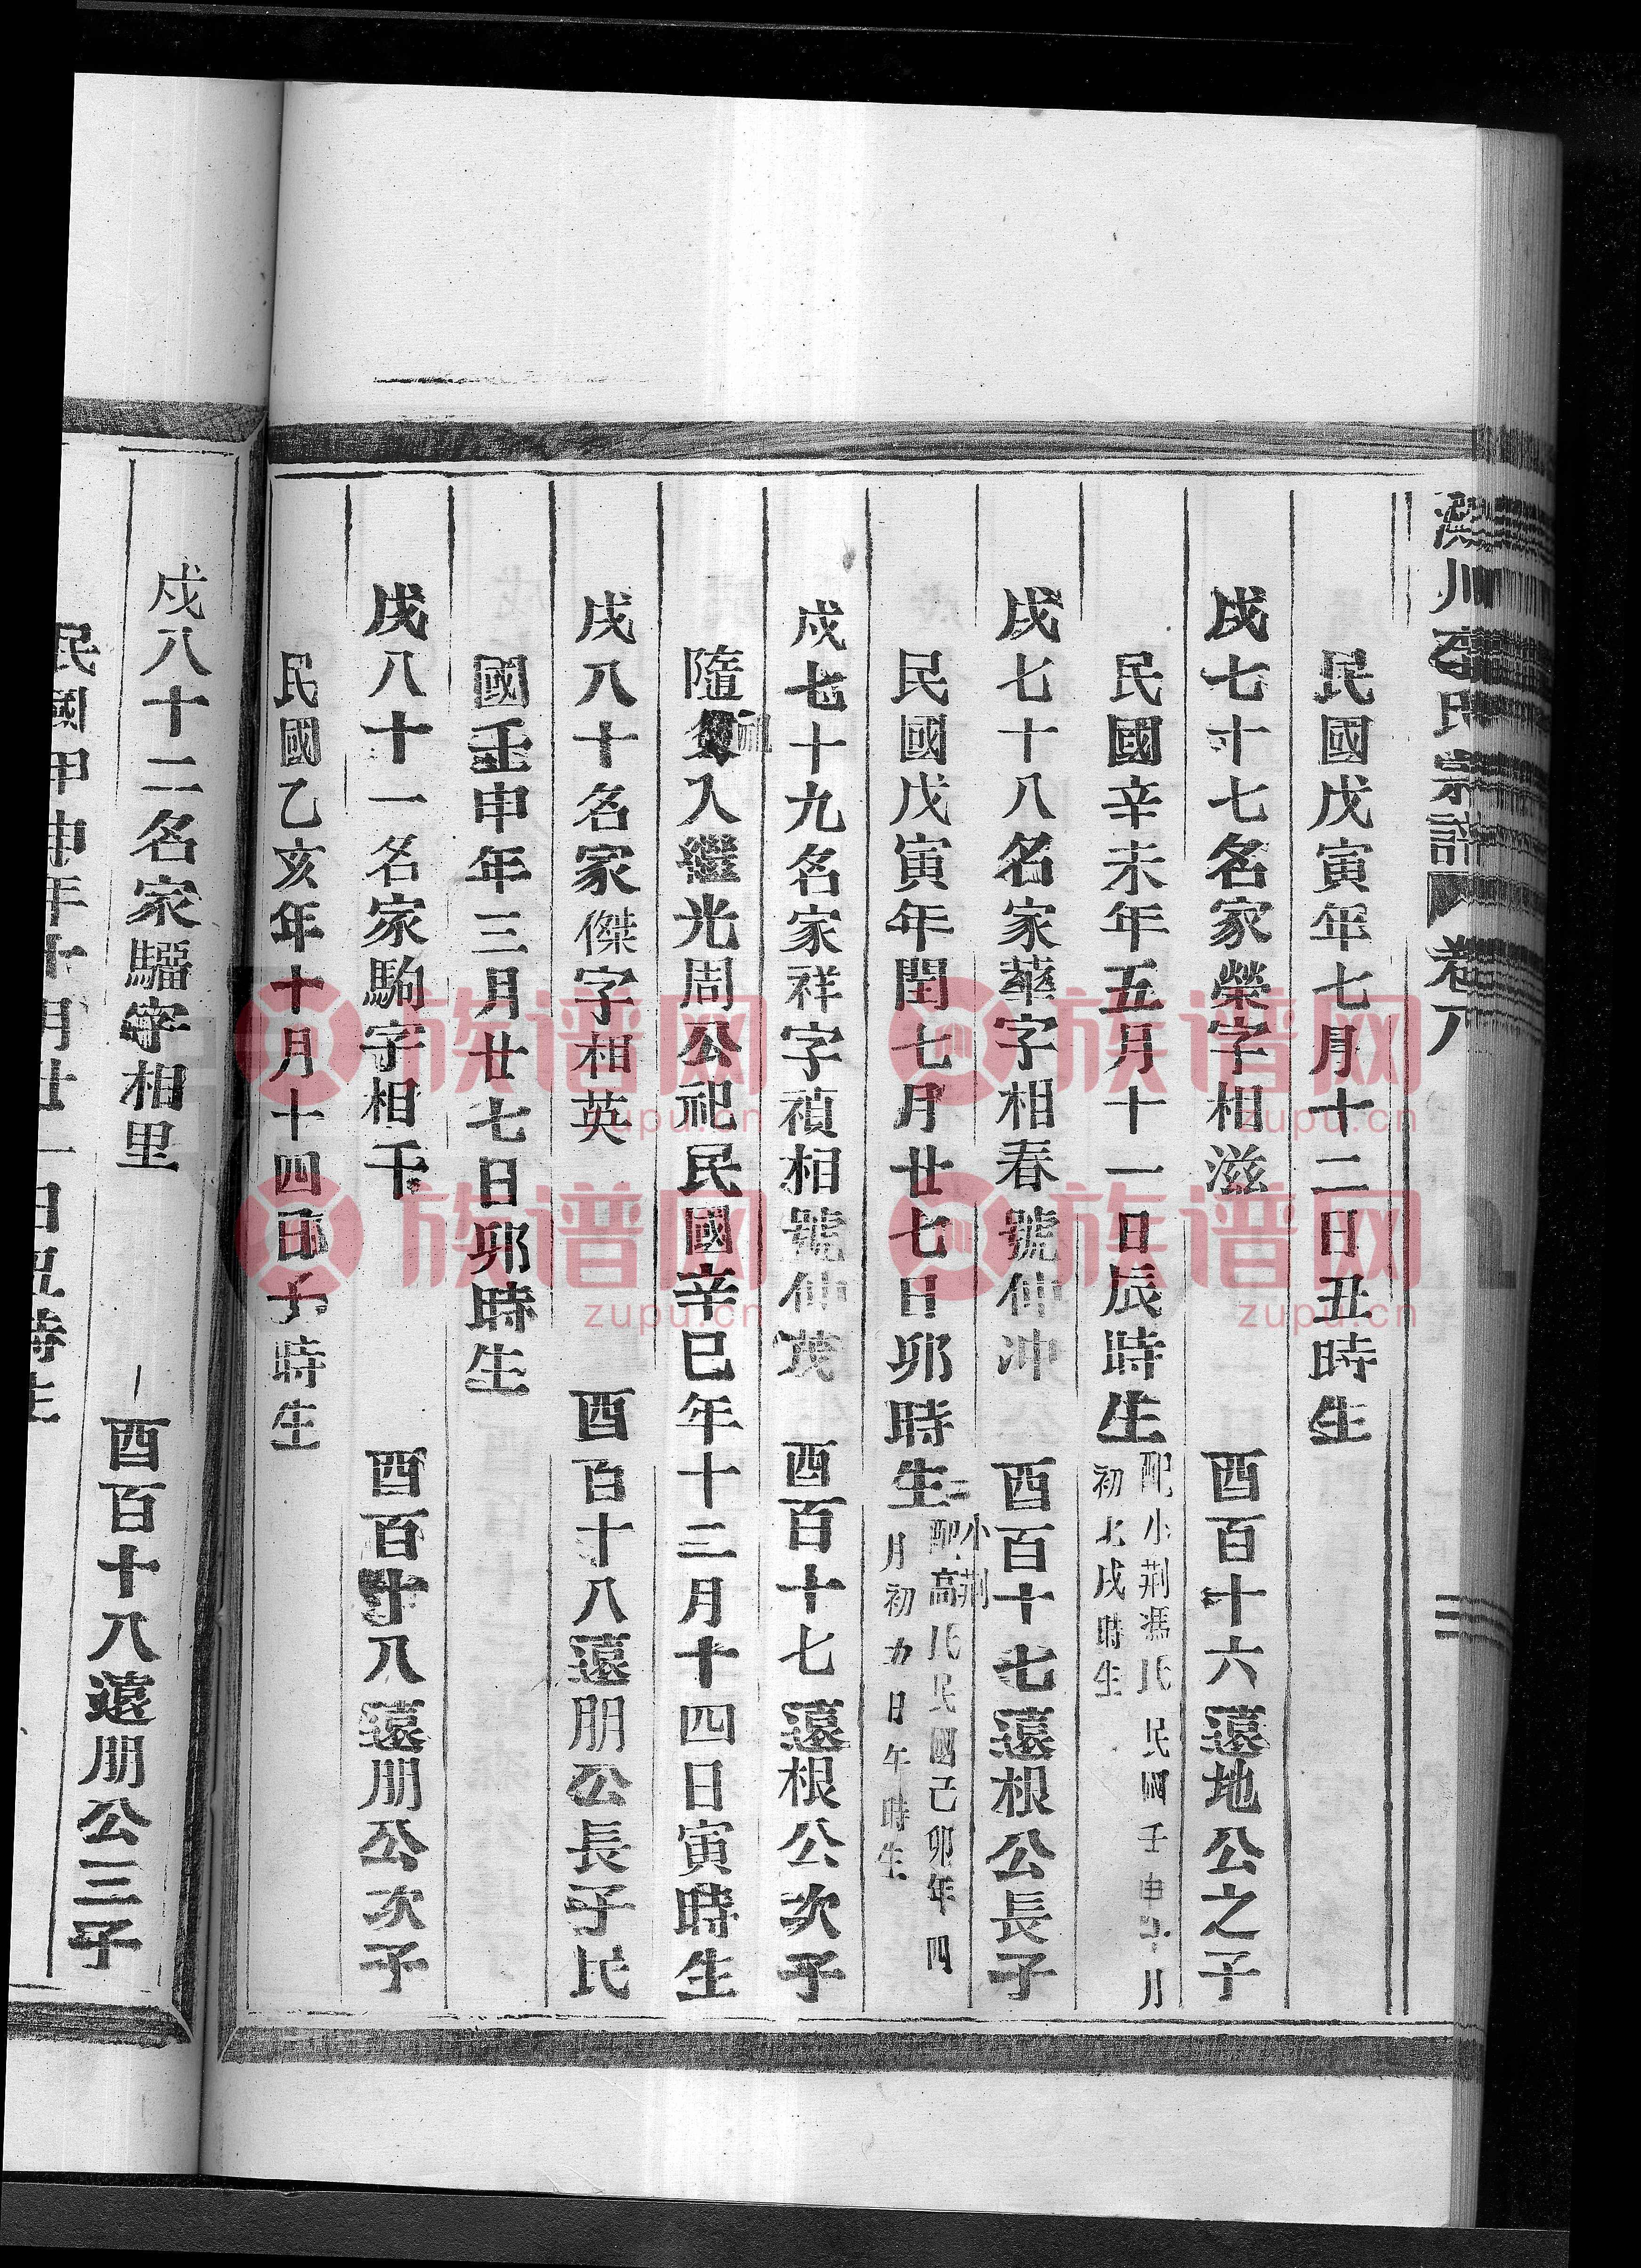 川石氏宗譜 卷八
民國戊寅年七月十二日丑時生
戌七十七名家榮字相滋 酉百十六遠地公之子
民國辛未年五月十一日辰時生 配小荆馮氏民國壬申十月
初 戌時生
戌七十八名家華字相春號仲冲 酉百十七遠根公長子
民國戊寅年閏七月廿七日卯時生 配小荆高氏民國己卯年四
月初九日午時生
戌七十九名家祥字禎相號仲茂 酉百十七遠根公次子
隨 入繼光周公祀民國辛巳年十二月十四日寅時生
戌八十名家傑字相英 酉百十八遠朋公長子民
國壬申年三月廿七日卯時生
戌八十一名家駒字相千 酉百十八遠朋公次子
民國乙亥年十月十四日子時生
戌八十二名家騮字相里 酉百十八遠朋公三子
民國甲申年十月廿一日丑時生
族谱网
zupu.cn
族谱网
zupu.cn
族谱网
zupu.cn
族谱网
zupu.cn